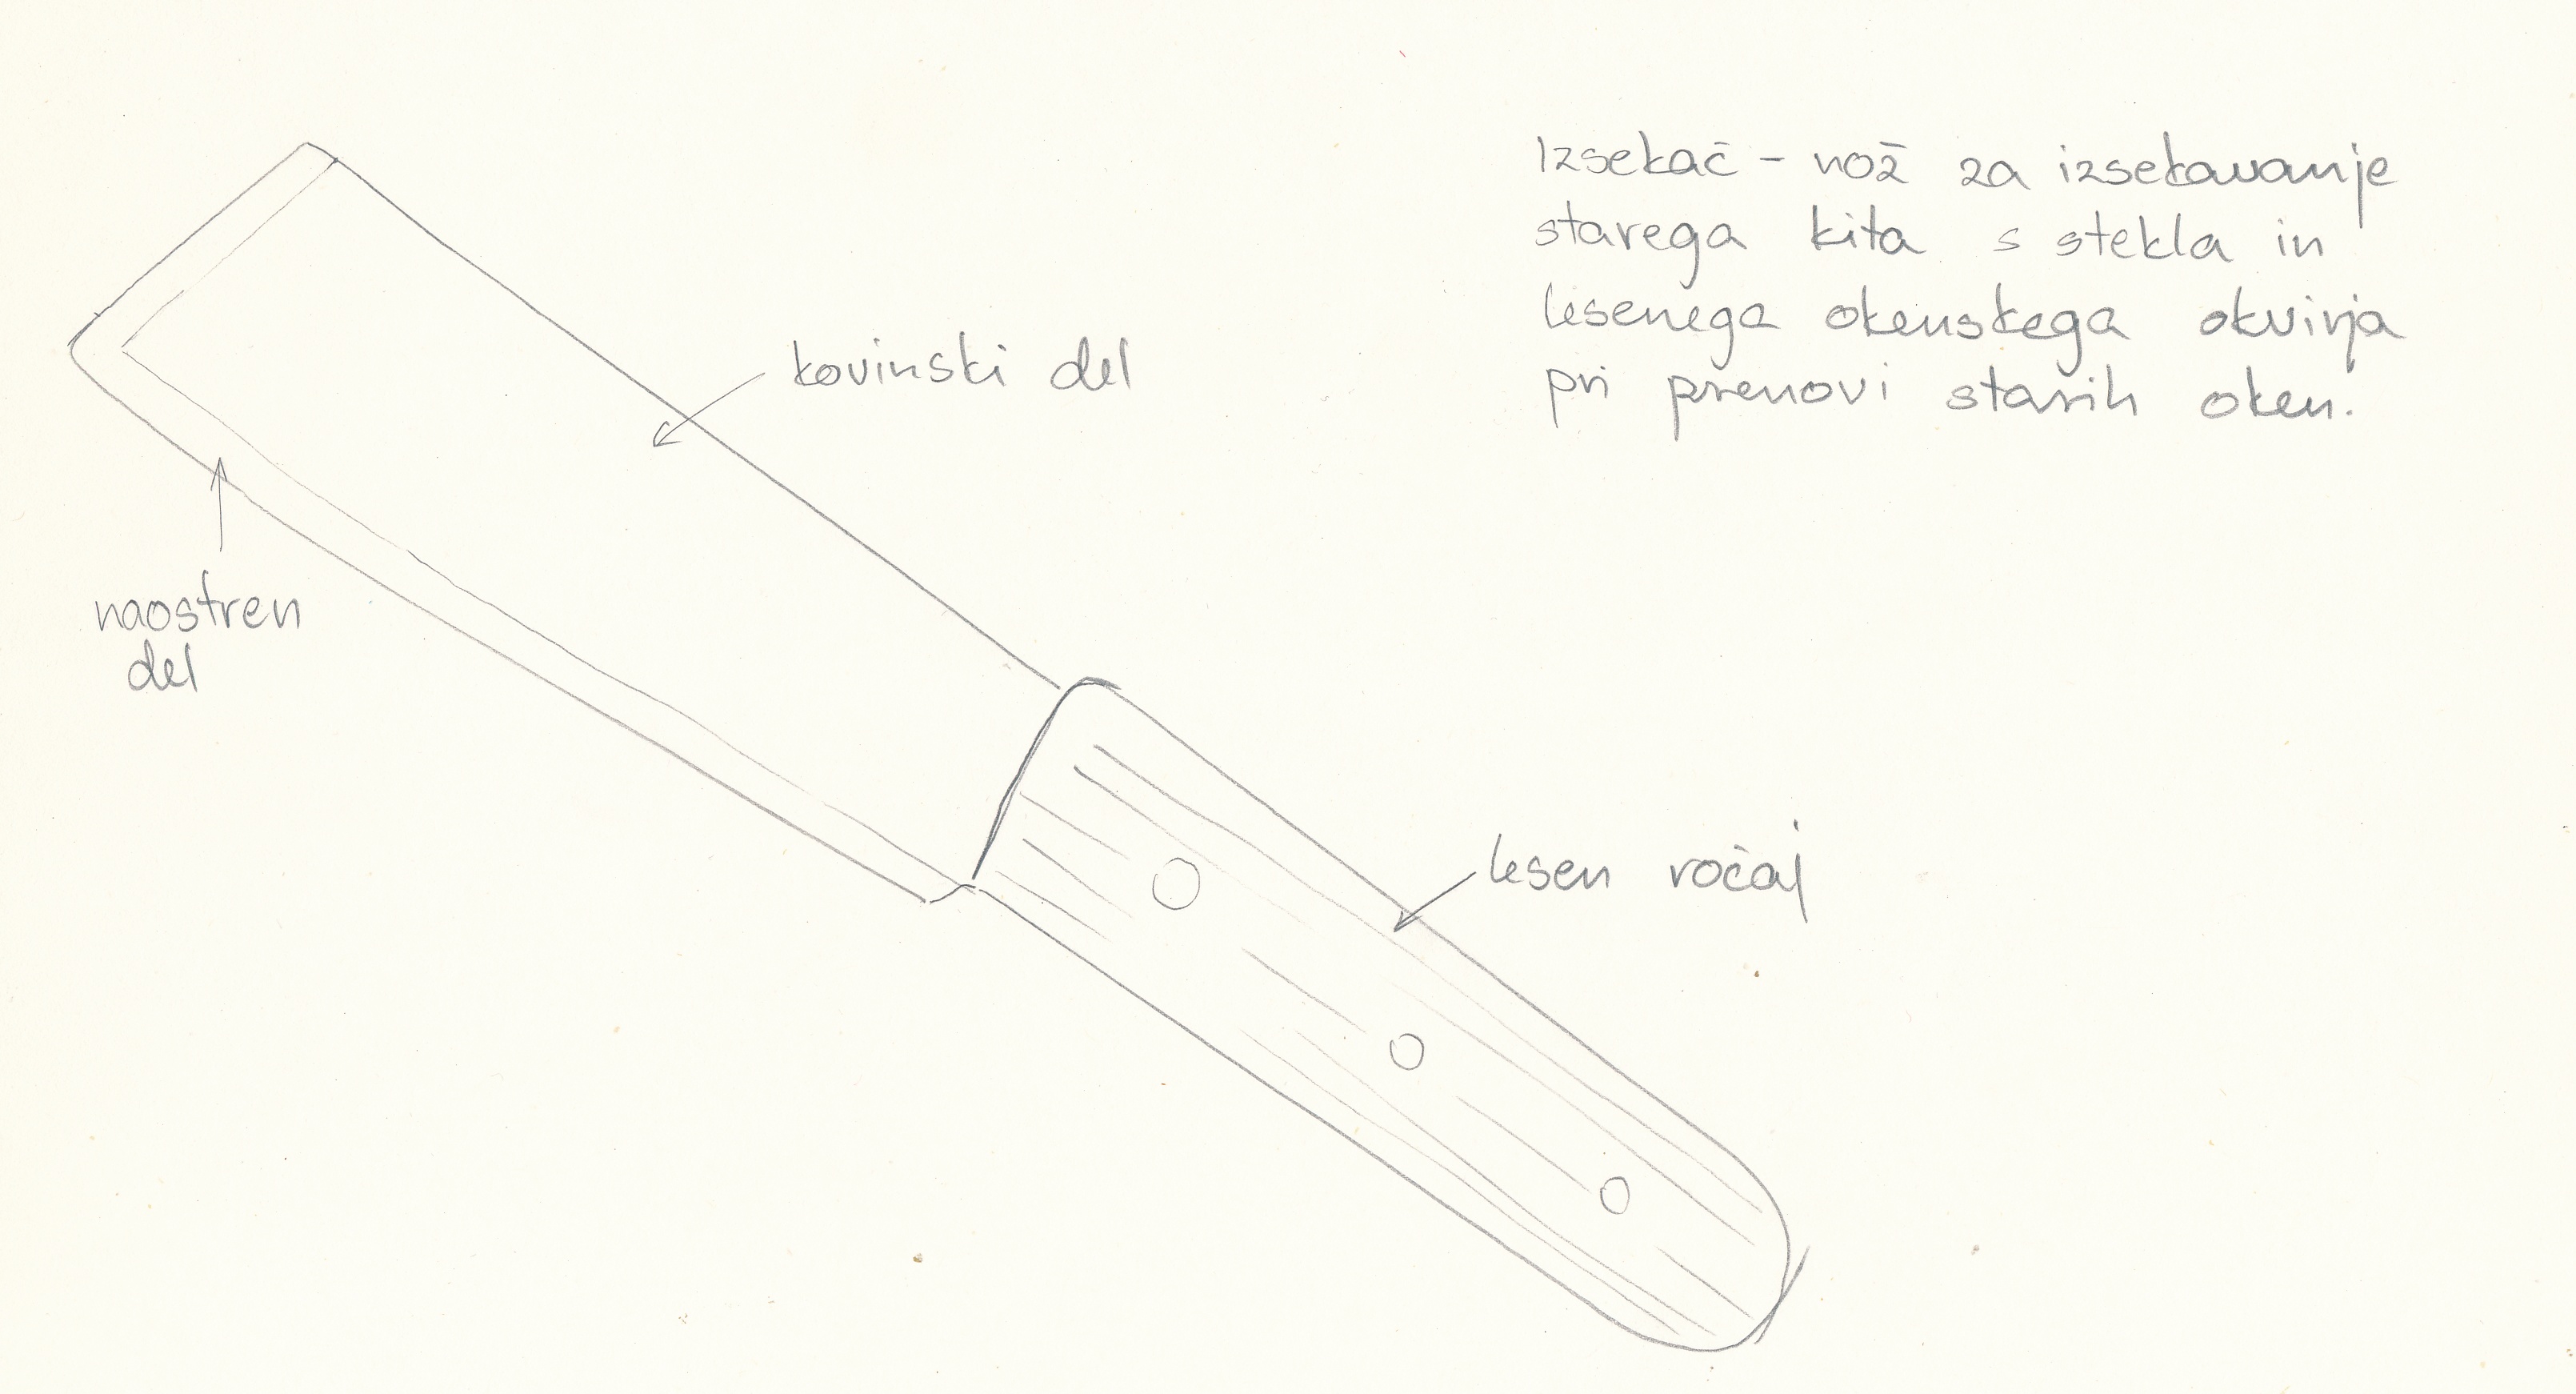 Izsekač - nož za izsekavanje
starega kita s stekla in
lesenega okenskega okvirja
pri prenovi starih oken.
kovinski del
naostren
del
lesen ročaj